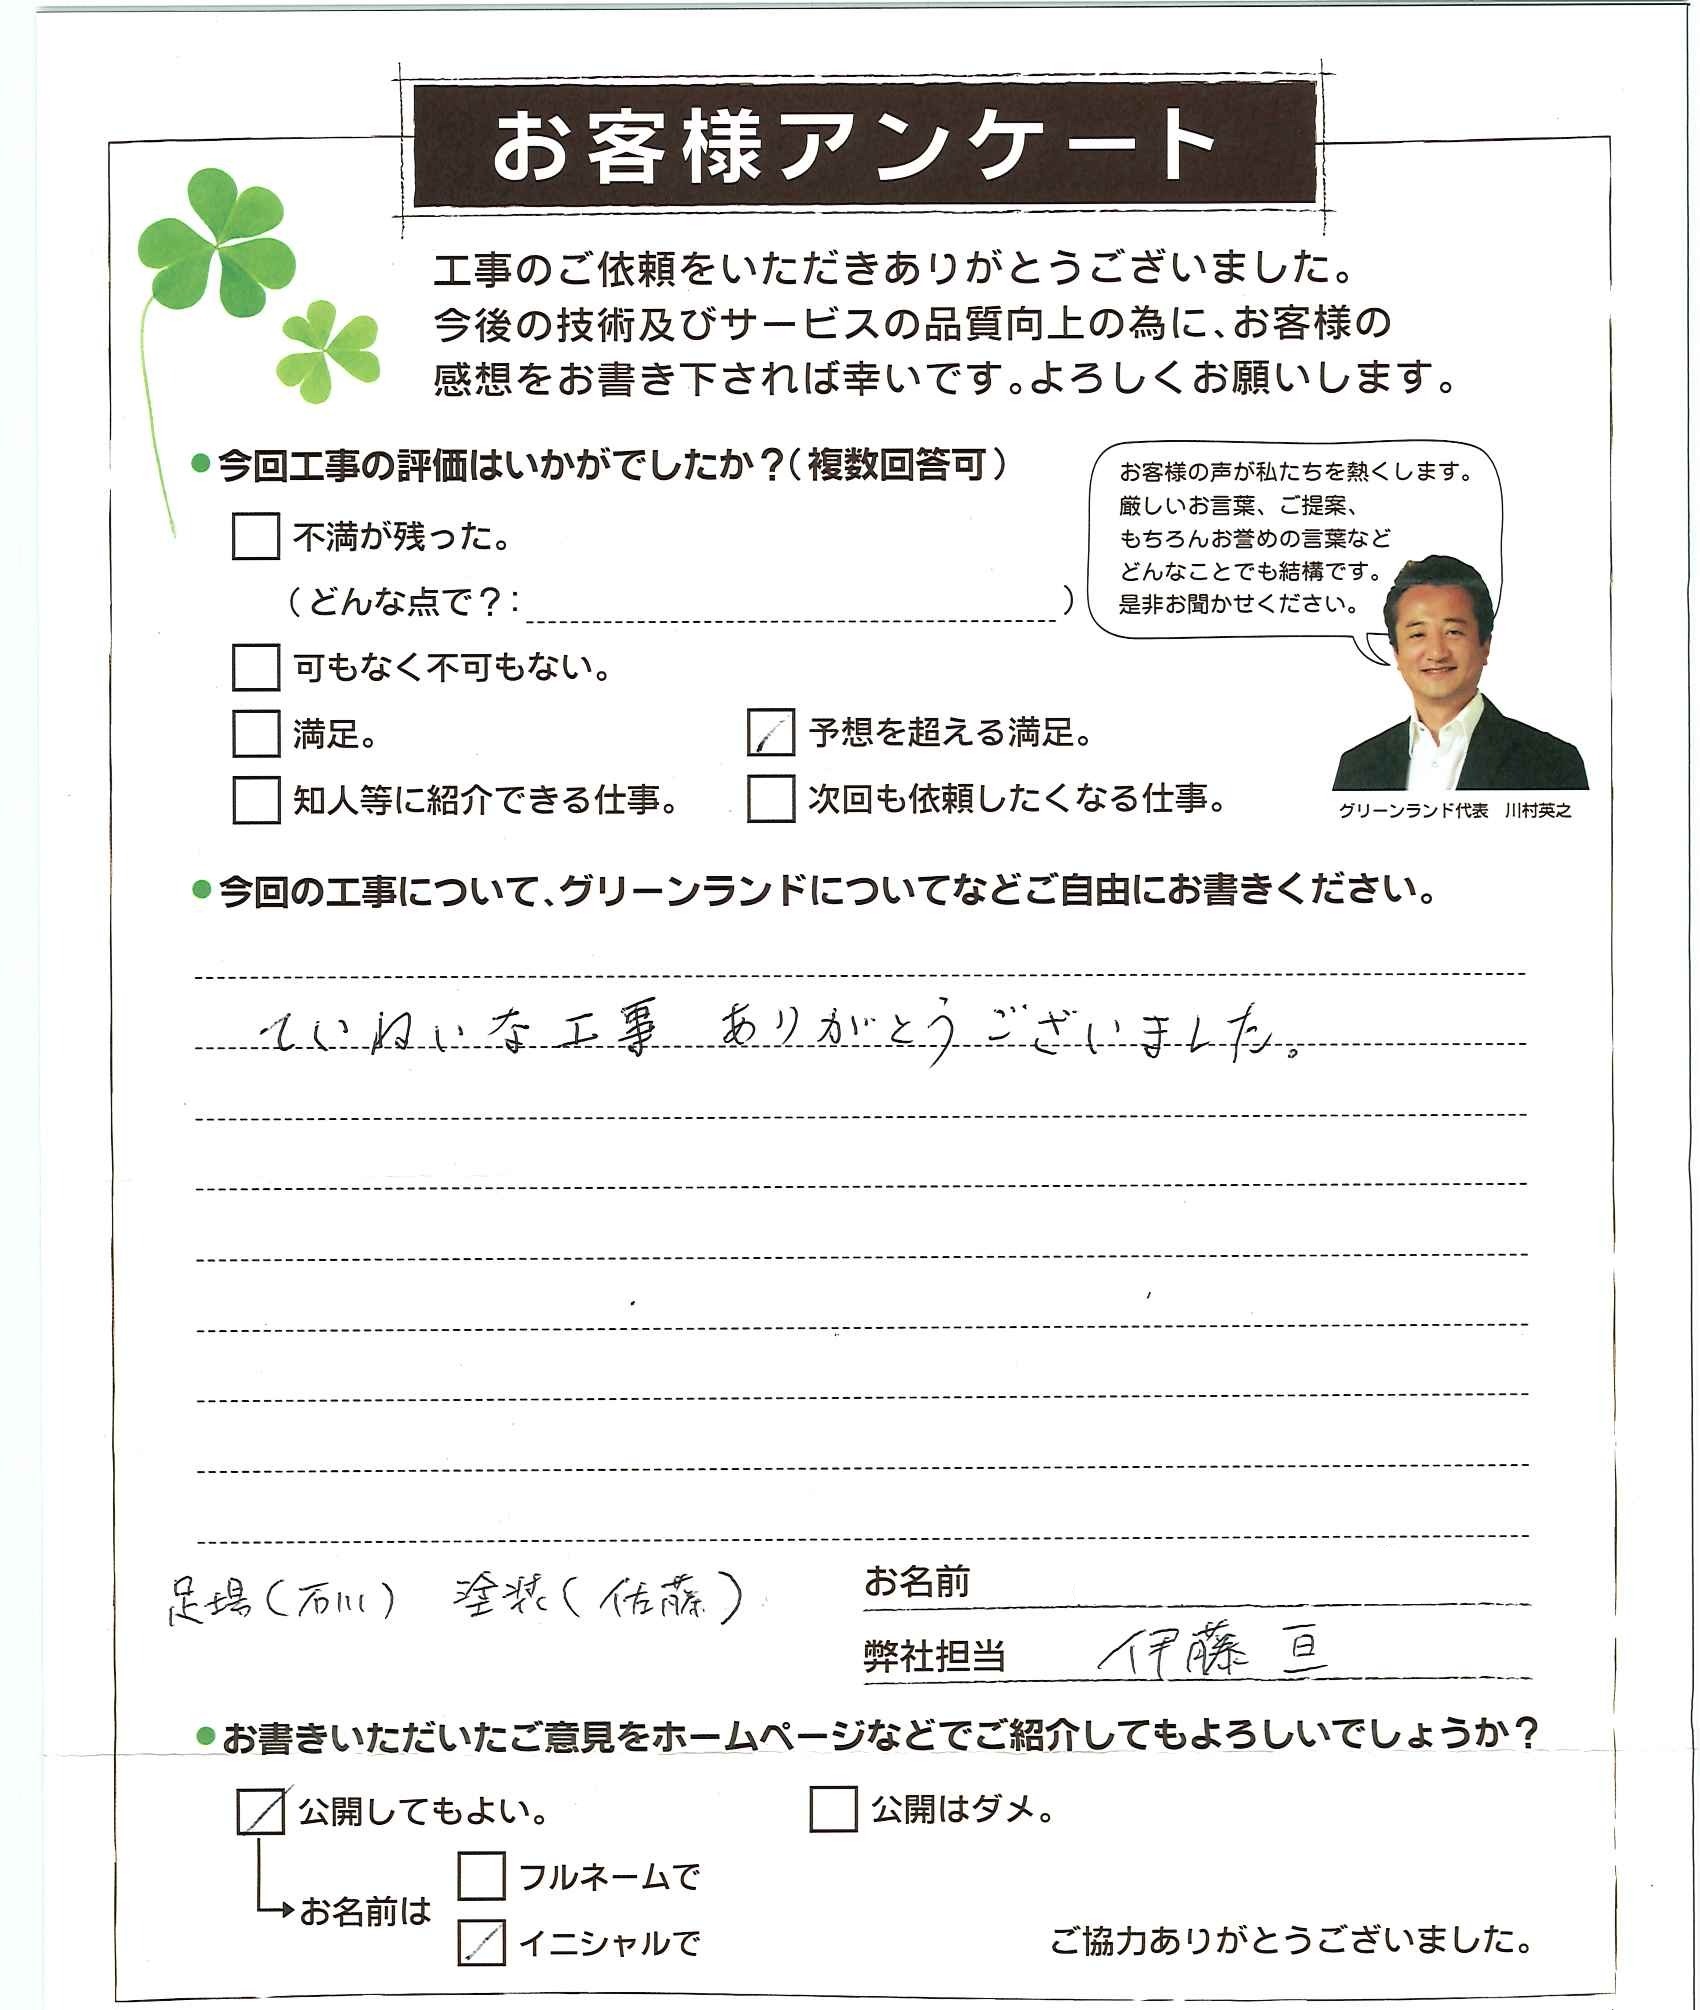 お客様アンケート
工事のご依頼をいただきありがとうございました。
今後の技術及びサービスの品質向上の為に、お客様の
感想をお書き下されば幸いです。よろしくお願いします。
●今回工事の評価はいかがでしたか?(複数回答可)
不満が残った。
(どんな点で?: )
可もなく不可もない。
満足。
予想を超える満足。
知人等に紹介できる仕事。
次回も依頼したくなる仕事。
お客様の声が私たちを熱くします。
厳しいお言葉、ご提案、
もちろんお誉めの言葉など
どんなことでも結構です。
是非お聞かせください。
グリーンランド代表 川村英之
●今回の工事について、グリーンランドについてなどご自由にお書きください。
ていねいな工事 ありがとうございました。
足場(石川) 塗装(佐藤)
お名前
弊社担当 伊藤 亘
●お書きいただいたご意見をホームページなどでご紹介してもよろしいでしょうか?
公開してもよい。
公開はダメ。
お名前は
フルネームで
イニシャルで
ご協力ありがとうございました。